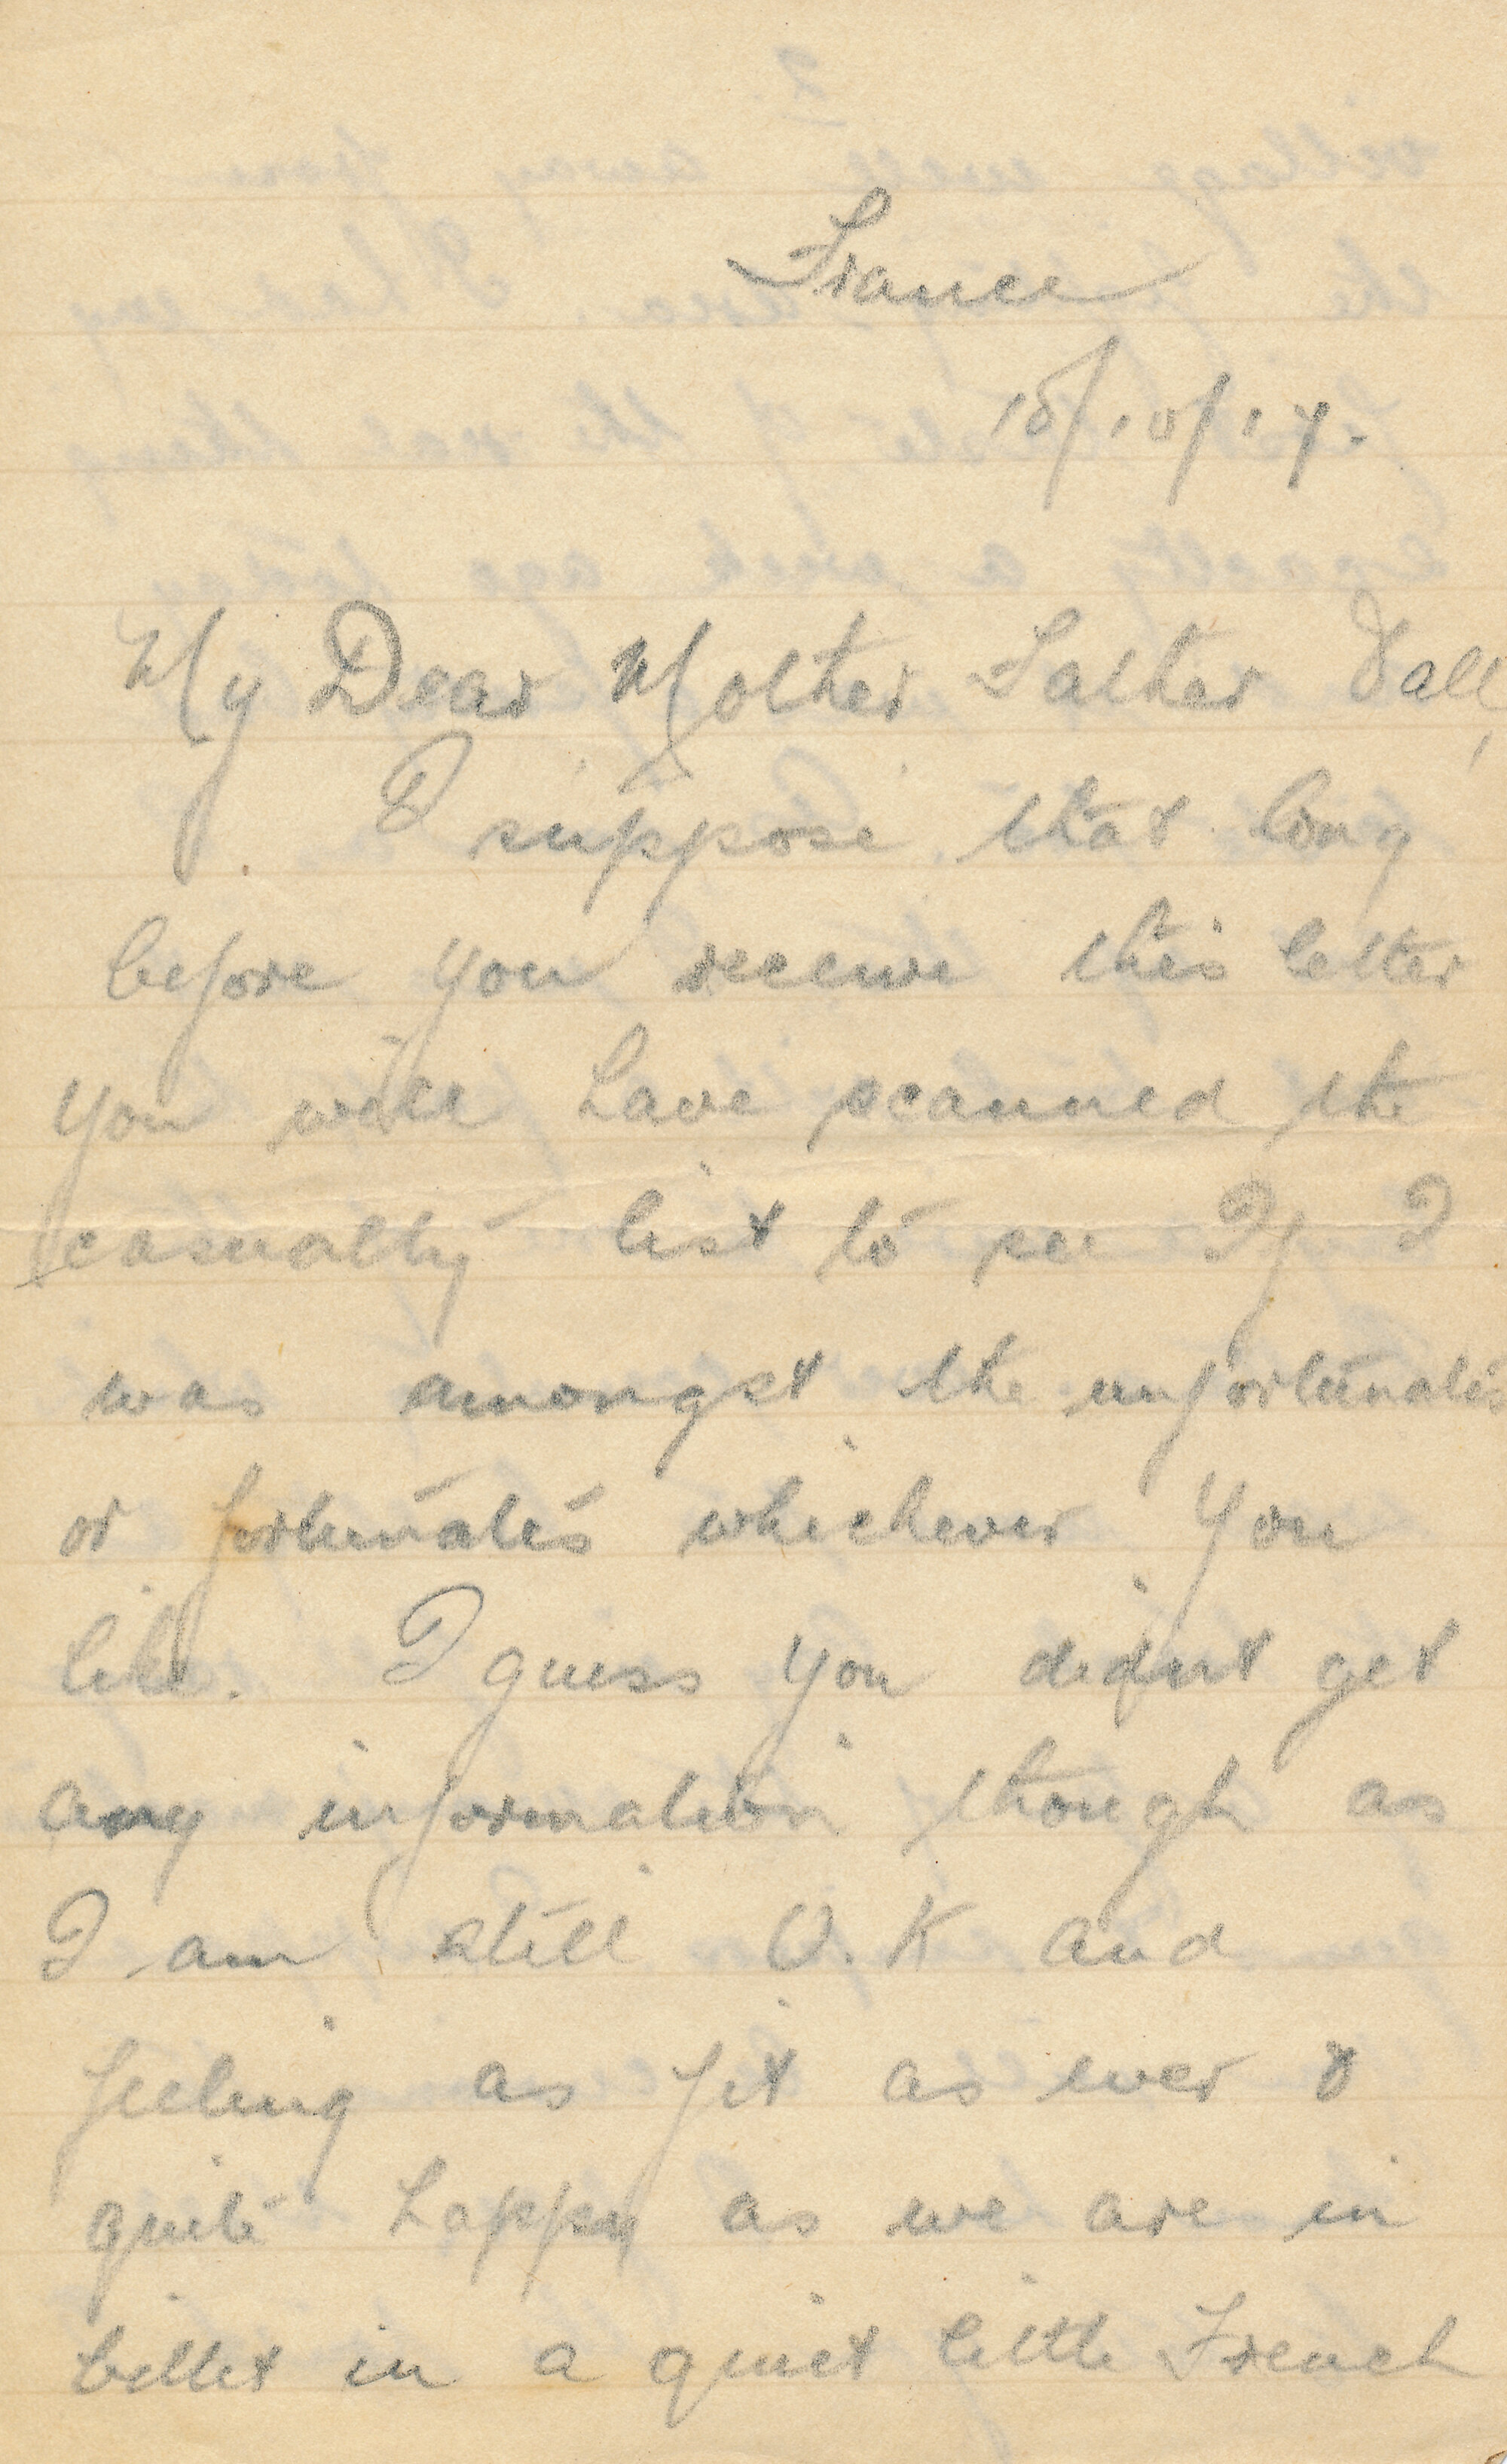 France
18/10/17.
My Dear Mother Father & all,
I suppose that long
before you receive this letter
you will have scanned the
casualty list to see If I
was amongst the unfortunates
or fortunates whichever you
like. I guess you didnt get
any information though as
I am still O.K and
feeling as fit as ever &
quite happy as we are in
billet in a quiet little French